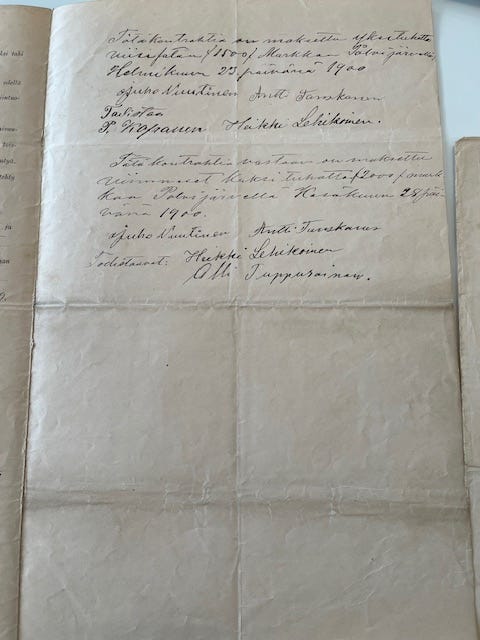 Tätä kontrahtia on maksettu yksituhatta
viisisataa /1500/ Markkaa Polvijärvellä
Helmikuun 23 päivänä 1900
Juho Vuutinen Antti Tanskanen
Todistaa
P. Kosanen Heikki Lehikoinen.
Tätä kontrahtia vastaan on maksettu
viimmeiset kaksi tuhatta /2000/ mark-
kaa Polvijärvellä Kesäkuun 28 päi-
vänä 1900.
Juho Vuutinen Antti Tanskanen
Todistavat: Heikki Lehikoinen
Olli Tuppurainen.